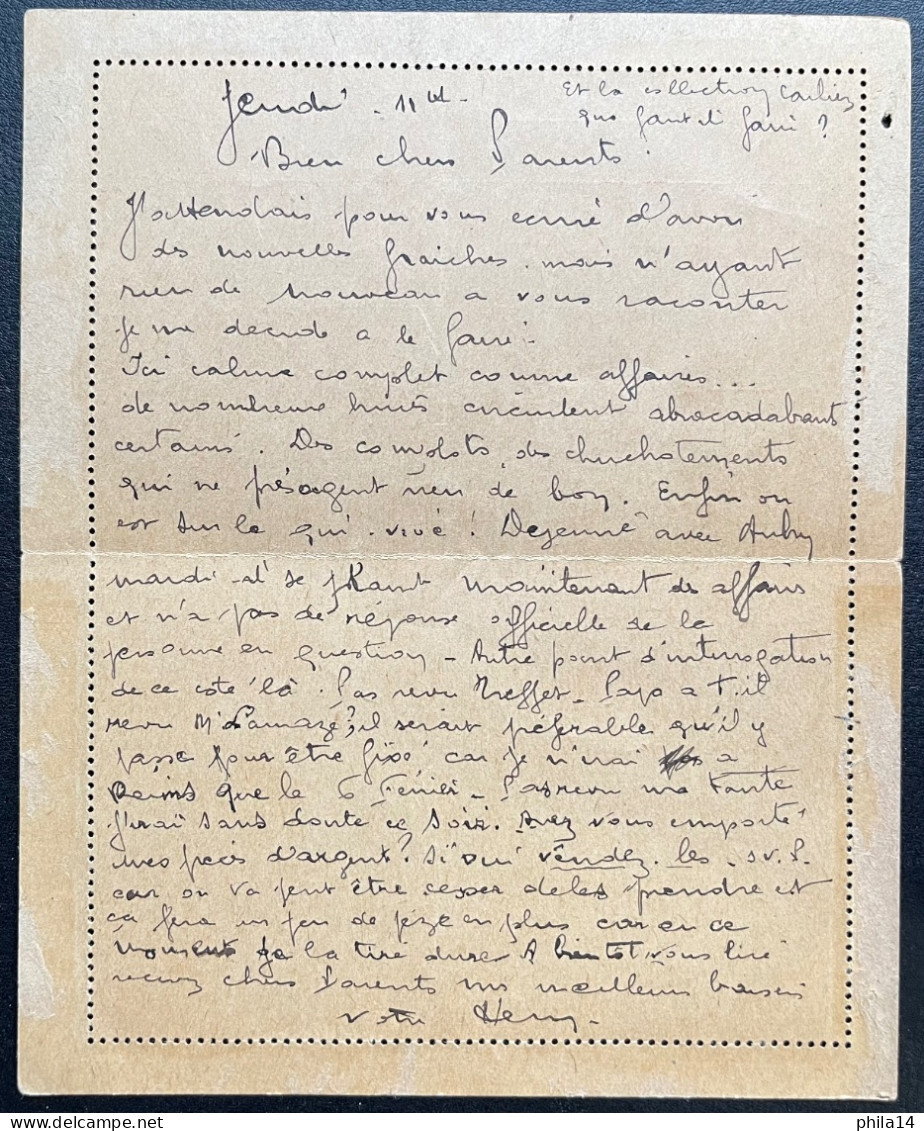 Jeudi - 11h -
Et la collection
que faut il faire ?
Bien chers Parents.
J'attendais pour vous ecrire d'avoir
des nouvelles fraiches. mais n'ayant
rien de nouveau a vous raconter
je me decide a le faire -
Ici calme complet comme affaires...
de nombreux bruits circulent abracadabrant
certains. Des complots, des chuchotements
qui ne présagent rien de bon. Enfin on
est sur le qui-vive ! Dejeuné avec Aubry
mardi - il se maintenant des affaires
et n'a pas de réponse officielle de la
personne en question - Autre point d'interrogation
de ce coté là. Pas revu Treffet - Papa a t-il
revu Mr Lamaze?, il serait préférable qu'il y
passe pour être fixé car je n'irai a
Reims que le 6 Février - Pas revu ma Tante
j'irai sans doute ce soir. Avez vous emporté
mes pièces d'argent? Si oui vendez-les - s.v.P.
car on va peut être cesser de les prendre et
ça fera un peu de pèze en plus car en ce
moment je la tire dure A bientôt vous lire
recevez chers Parents mes meilleurs baisers
votre Henry -
philla14